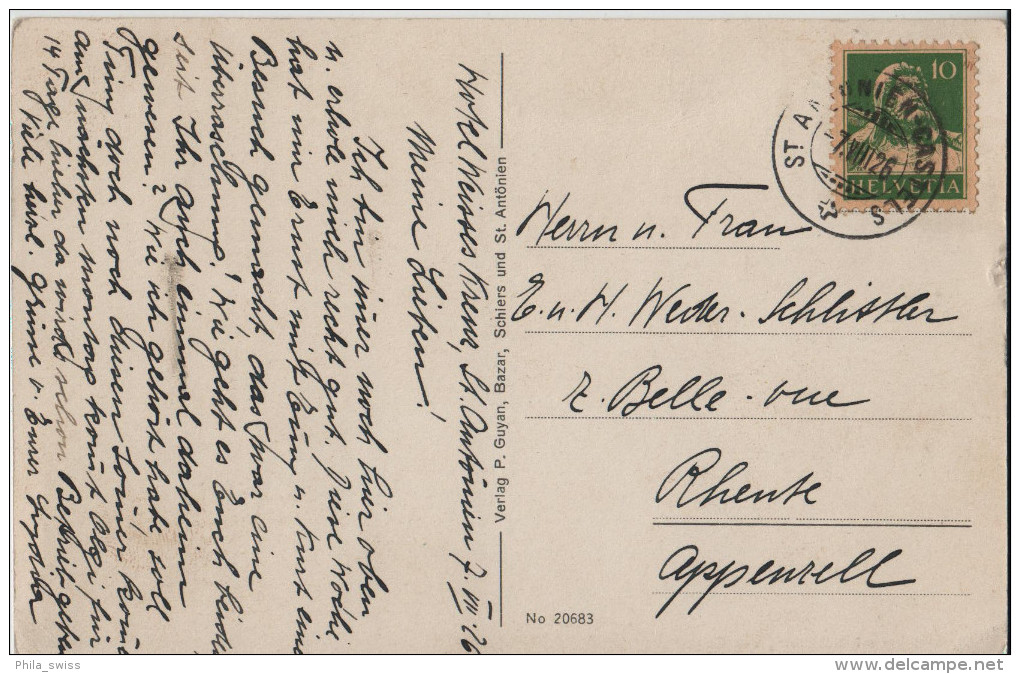 Hotel Weisses Kreuz, St. Antönien 7. VIII. 26
Meine Lieben!
Ich bin immer noch hier oben
u. erhole mich recht gut. Diese Woche
hat mein Ernst mit Emmy u. Kurt einen
Besuch gemacht, das war eine
Überraschung. Wie geht es Euch beiden
seit Ihr auch einmal daheim
gewesen? Wie ich gehört habe, soll
doch noch diesen
am nächsten Montag Olgi für
14 Tage hieher da wirds schon
Viele herzl. Grüsse v. Eurer
Verlag P. Guyan, Bazar, Schiers und St. Antönien
No 20683
10
HELVETIA
ST. ANTÖNIEN-CASTELS
-7.VIII.26
Herrn u. Frau
E. u. H. Weder-Schlittler
z. Belle-vue
Rhente
Appenzell
Phila_swiss
delcampe.net